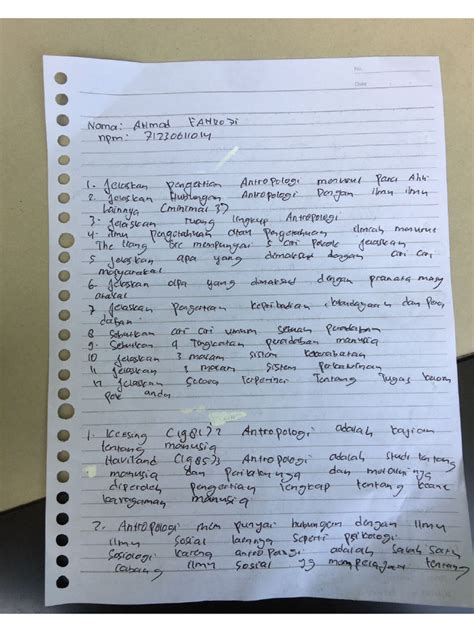 No.
Date
Nama: Ahmad FAHROJI
npm: 71230611014
1. Jelaskan pengertian Antropologi menurut para Ahli
2. Jelaskan Hubungan Antropologi Dengan ilmu ilmu
lainnya (minimal 3)
3. Jelaskan ruang lingkup Antropologi
4. ilmu pengetahuan atau pengetahuan ilmiah menurut
The Liang Gie mempunyai 5 ciri pokok Jelaskan
5 Jelaskan apa yang dimaksud dengan ciri ciri
masyarakat
6 Jelaskan apa yang dimaksud dengan pranata masy
arakat
7 Jelaskan pengertian kepribadian, kebudayaan dan pera
daban
8 Sebutkan ciri ciri umum sebuah peradaban
9. Sebutkan 4 Tingkatan peradaban manusia
10 Jelaskan 3 macam sistem kekerabatan
11 Jelaskan 3 macam sistem perkawinan
12 Jelaskan secara terperinci Tentang Tugas kelom
pok anda
1. Keesing (1981)? Antropologi adalah kajian
tentang manusia
Haviland (1985)? Antropologi adalah studi tentang
manusia dan perilakunya dan melaluinya
diperoleh pengertian lengkap tentang
keragaman manusia
2. Antropologi mempunyai hubungan dengan Ilmu
Ilmu sosial lainnya seperti psikologi
Sosiologi karena antropologi adalah salah satu
cabang ilmu sosial yg mempelajari tentang